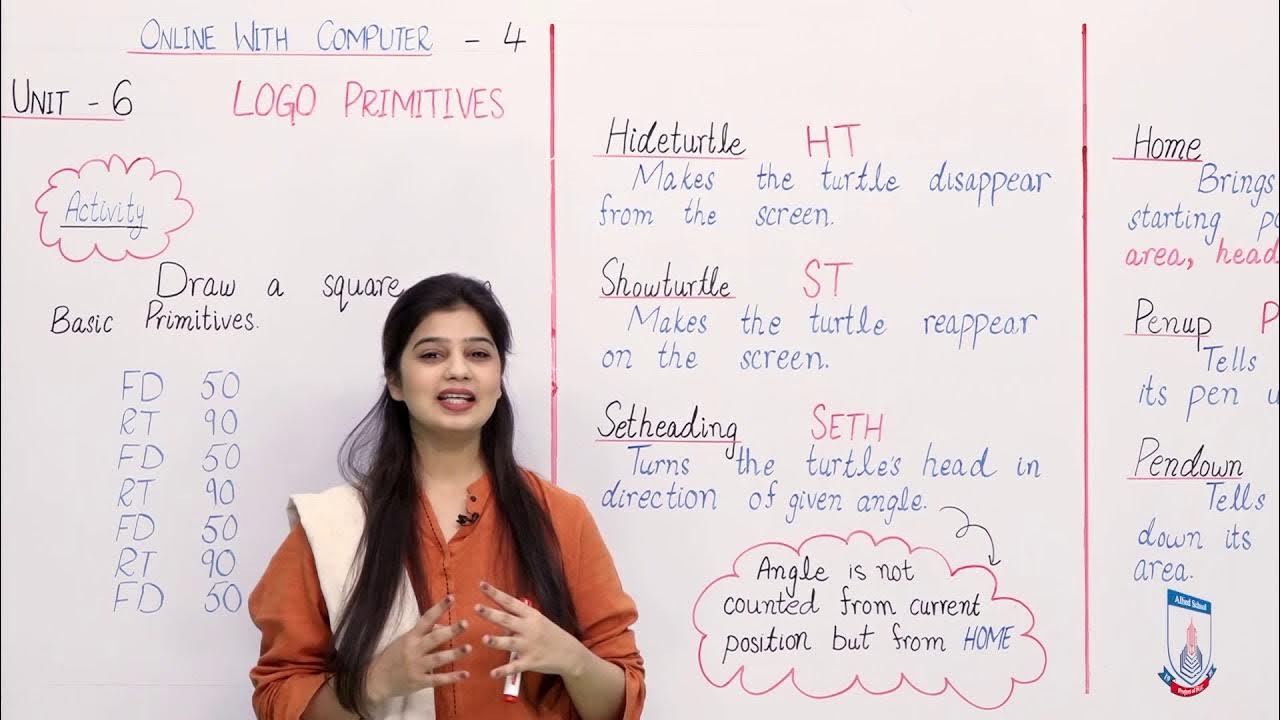 ONLINE WITH COMPUTER - 4
UNIT - 6 LOGO PRIMITIVES
Activity
Draw a square
Basic Primitives.
FD 50
RT 90
FD 50
RT 90
FD 50
RT 90
FD 50
Hideturtle HT
Makes the turtle disappear
from the screen.
Showturtle ST
Makes the turtle reappear
on the screen.
Setheading SETH
Turns the turtle's head in
direction of given angle.
Angle is not
counted from current
position but from HOME
Home
Brings
starting
area, head
Penup P
Tells
its pen
Pendown
Tells
down its
area.
Allied School